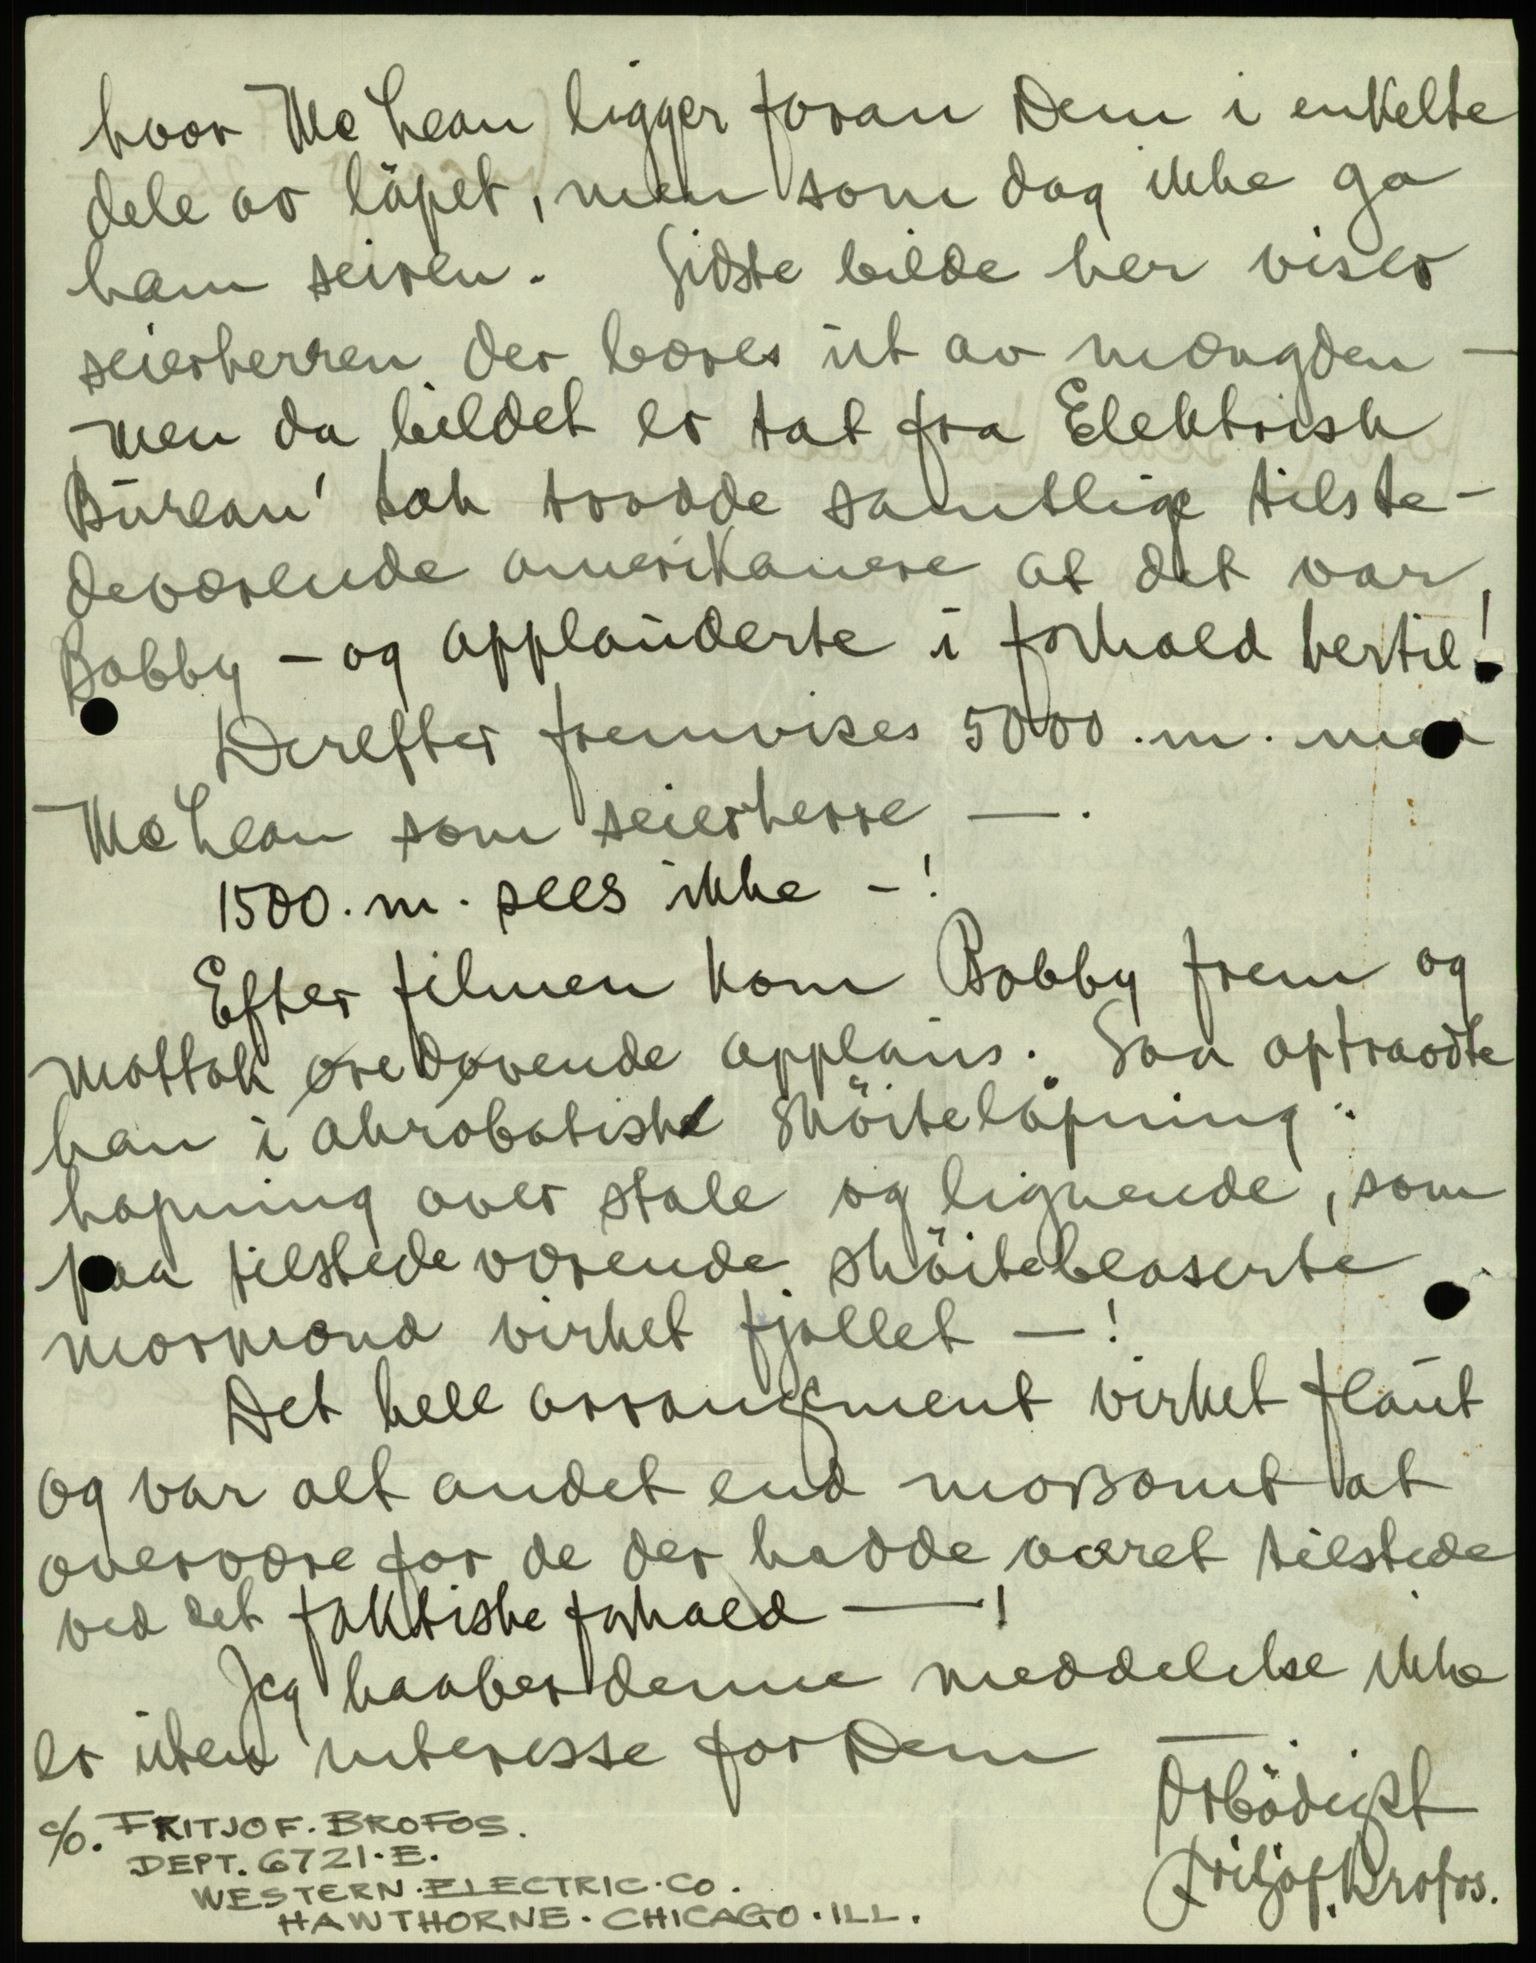 hvor Mc Lean ligger foran Dem i enkelte
dele av löpet, men som dog ikke ga
ham seiren. Sidste bilde her viser
seierherren der bæres ut av mængden —
men da bildet er tat fra Elektrisk
Bureau' tak trodde samtlige tilste-
deværende amerikanere at det var
Bobby – og applauderte i forhold hertil!
Derefter fremvises 5000.m. med
Mc Lean som seierherre — .
1500.m. sees ikke – !
Efter filmen kom Bobby frem og
mottok øredøvende applaus. Saa optraadte
han i akrobatisk sköiteløpning:
hopning over stole og lignende, som
paa tilstedeværende sköiteblaserte
normænd virket fjollet — !
Det hele arrangement virket flaut
og var alt andet end morsomt at
overvære for de der hadde været tilstede
ved det faktiske forhold — !
Jeg haaber denne meddelelse ikke
er uten interesse for Dem —
Ærbödigst
Fritjof. Brofos.
c/o. FRITJOF. BROFOS.
DEPT. 6721.E.
WESTERN.ELECTRIC.CO.
HAWTHORNE. CHICAGO. ILL.